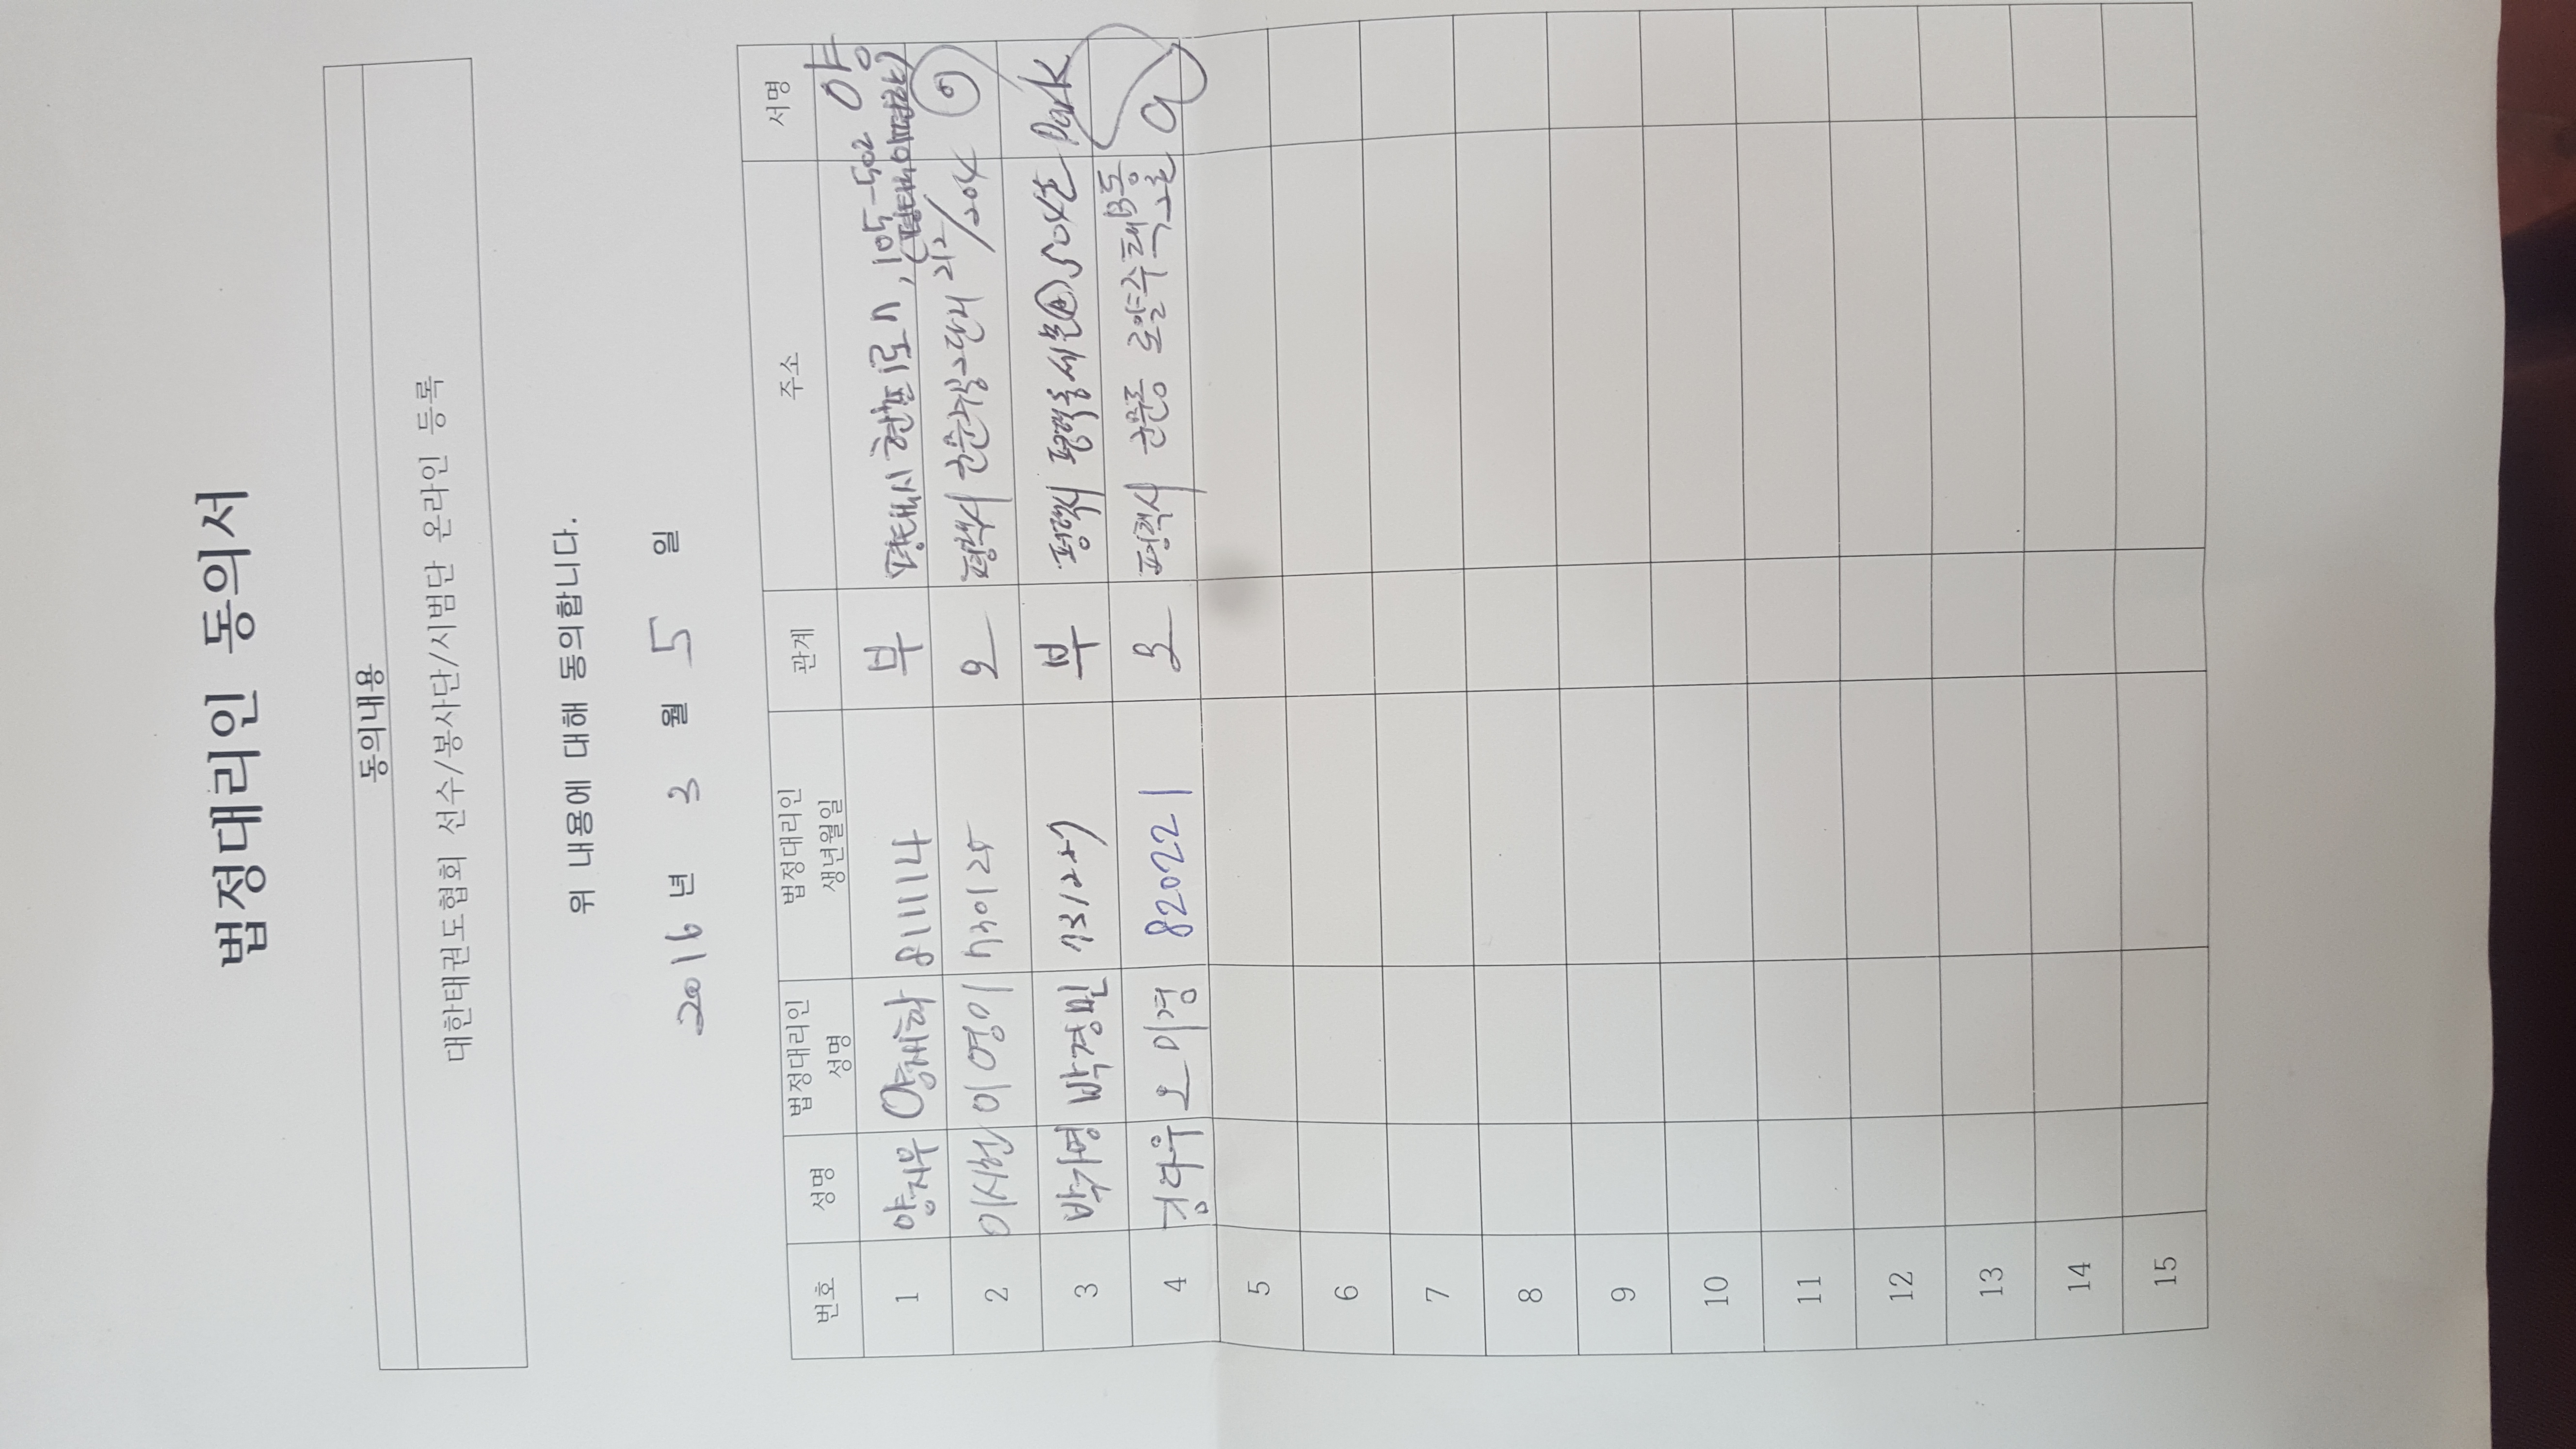 법정대리인 동의서
동의내용
대한태권도협회 선수/봉사단/시범단 온라인 등록
위 내용에 대해 동의합니다.
2016 년 3 월 5 일
번호 성명 법정대리인 성명 법정대리인 생년월일 관계 주소 서명
1 양지우 양재학 811114 부 평택시 현촌1로 105-502 양
2 이시헌 이영이 730125 모 평택시 212/204
3 박가명 박경빈 731227 부 평택시 평택동 504호 Park
4 김다우 오미경 820221 모 평택시 군문동 로얄주택B동
5
6
7
8
9
10
11
12
13
14
15